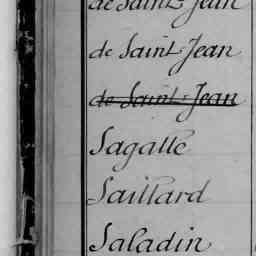 de Saint-Jean
de Saint-Jean
de Saint-Jean
Sagalle
Saillard
Saladin